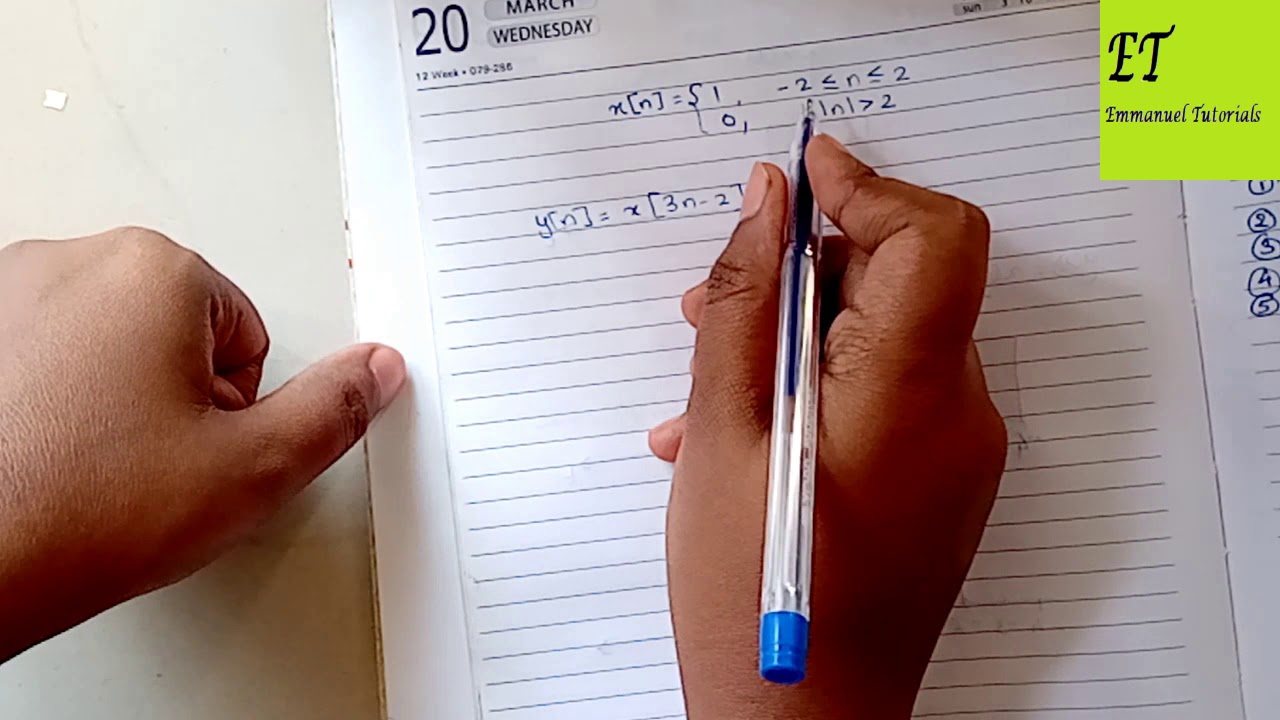 20
MARCH
WEDNESDAY
12 Week • 079-286
sun
x[n] = { 1 , -2 ≤ n ≤ 2
0, |n| > 2
y[n] = x [3n-2]
ET
Emmanuel Tutorials
①
②
③
④
⑤